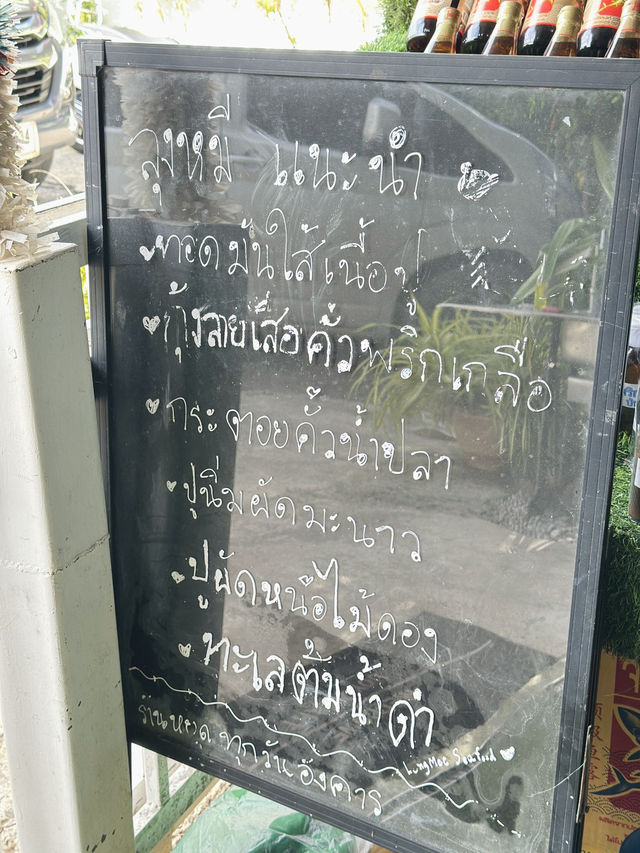 ลุงหมี แนะนำ
ทอดมันไส้เนื้อปู
กุ้งลายเสือคั่วพริกเกลือ
กระตอยคั่วน้ำปลา
ปูนิ่มผัดมะนาว
ปูผัดหน่อไม้ดอง
ทะเลต้มน้ำดำ
LungMee Seafood
ร้านหยุด ทุกวันอังคาร